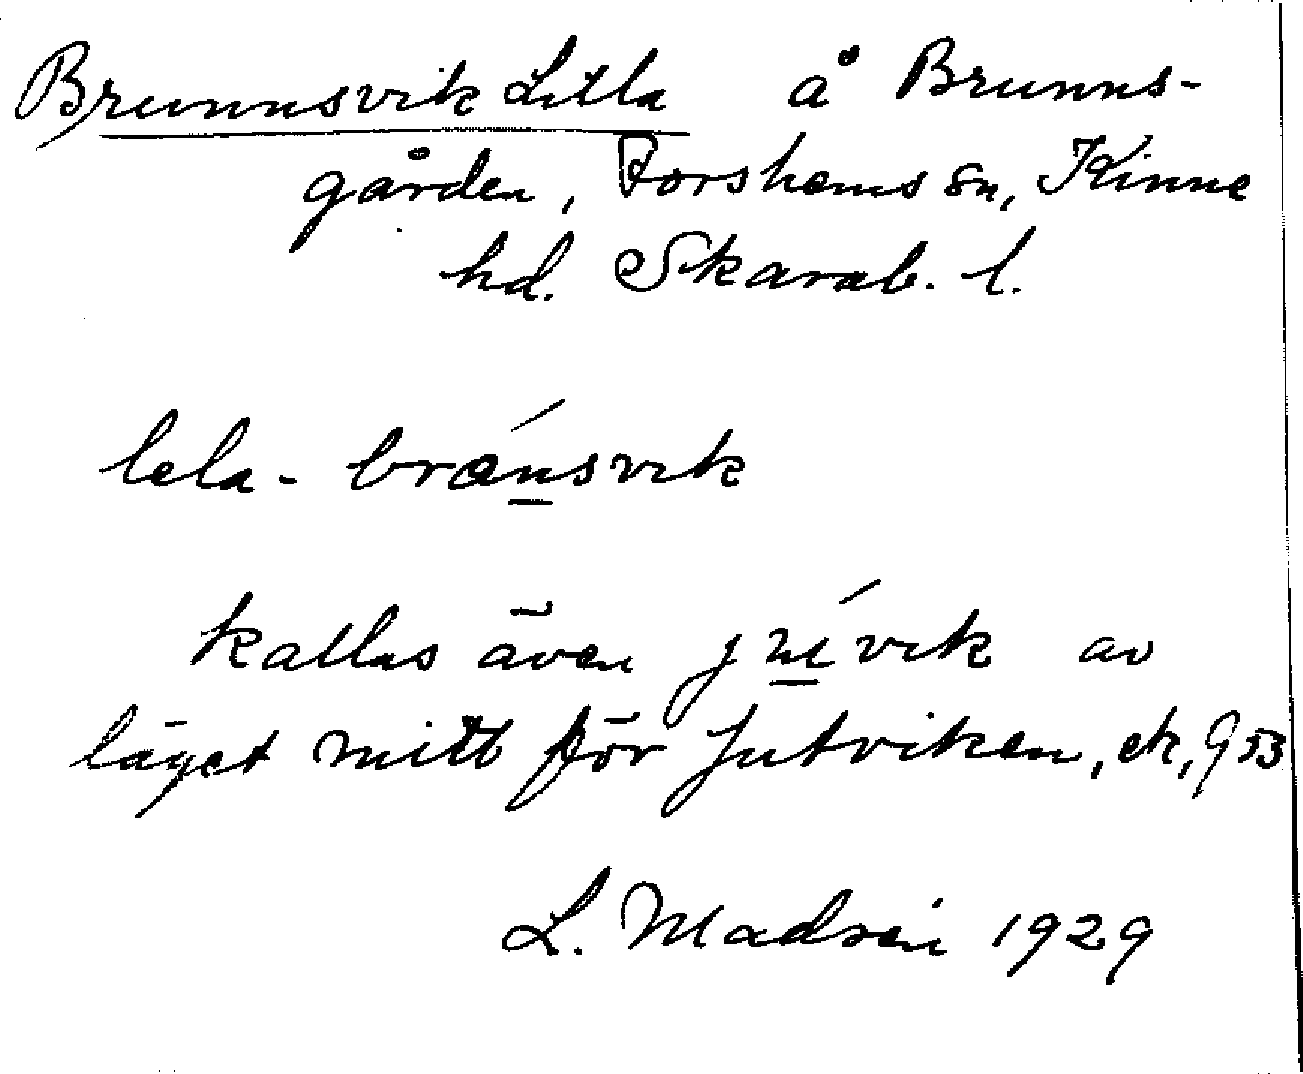 Brunnsvik Lilla å Brunns-
gården, Forshems sn, Kinne
hd. Skarab. l.
lela - brænsvik
kallas även jnívik av
läget mitt för Jutviken, ek, 953
L. Madsén 1929